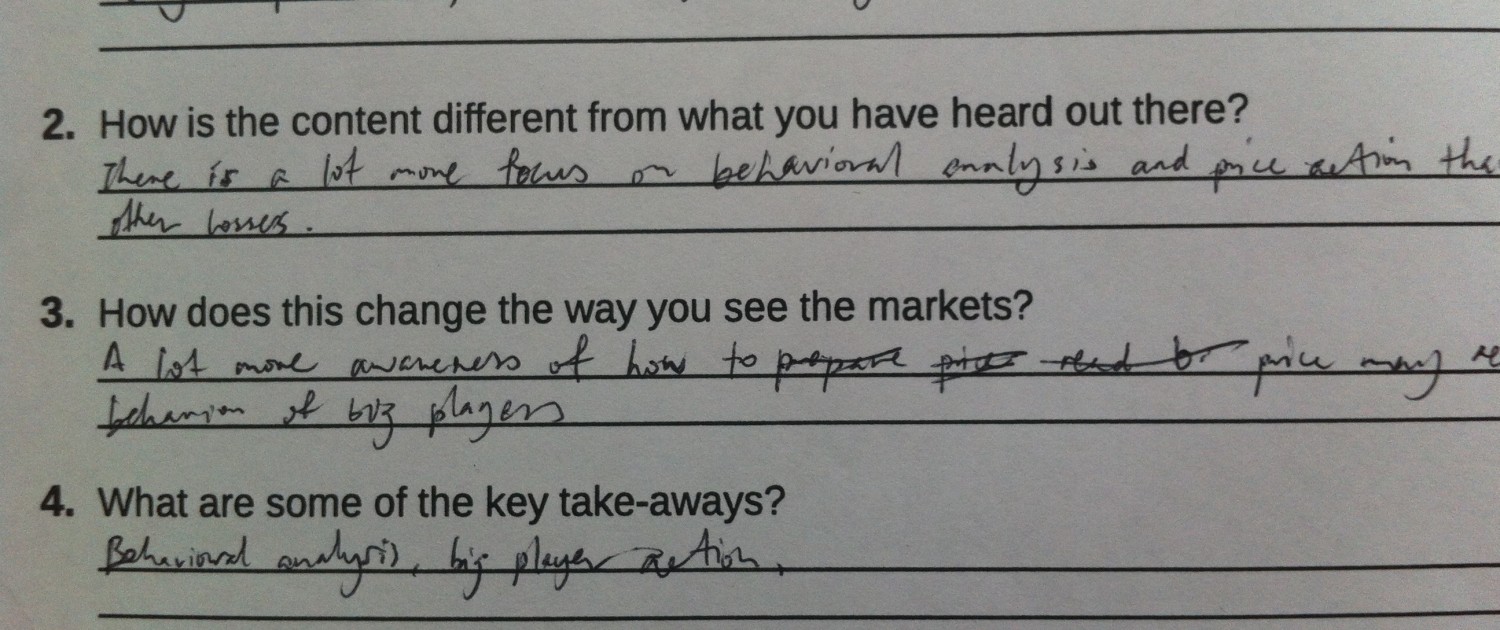 2. How is the content different from what you have heard out there?
There is a lot more focus on behavioral analysis and price action tha
other losses.
3. How does this change the way you see the markets?
A lot more awareness of how to prepare price read br price may re
behavior of big players
4. What are some of the key take-aways?
Behavioral analysis, big player action,